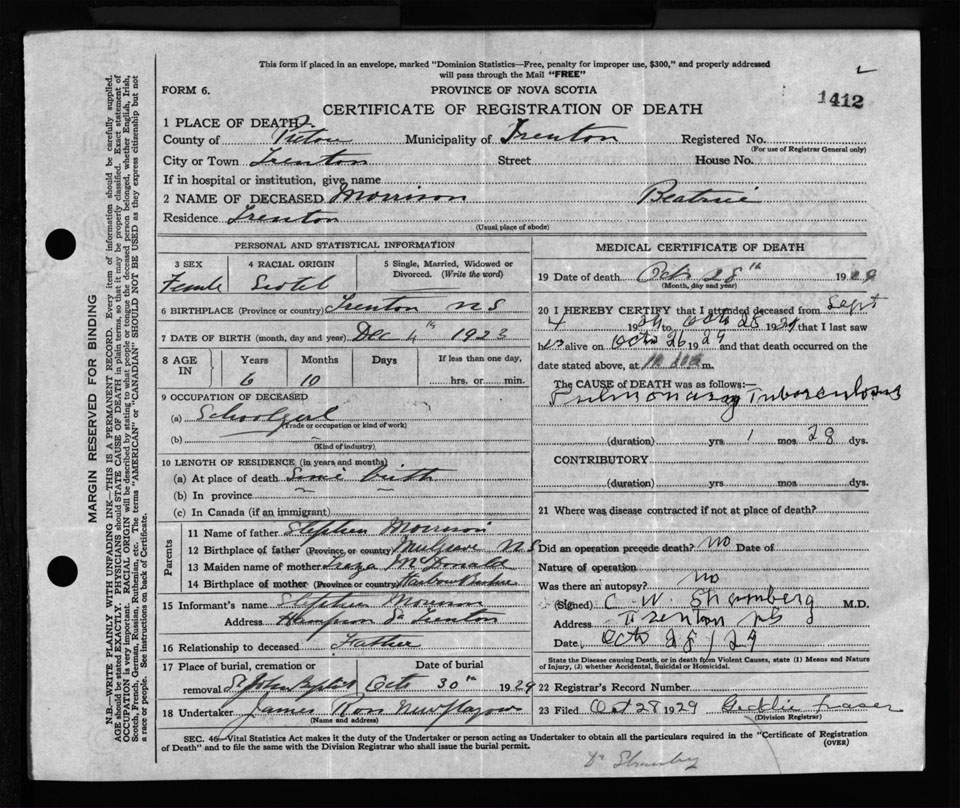 This form if placed in an envelope, marked "Dominion Statistics—Free, penalty for improper use, $300," and properly addressed
will pass through the Mail "FREE"
FORM 6.
PROVINCE OF NOVA SCOTIA
1412
CERTIFICATE OF REGISTRATION OF DEATH
1 PLACE OF DEATH
County of Pictou Municipality of Trenton Registered No.
(For use of Registrar General only)
City or Town Trenton Street House No.
If in hospital or institution, give name
2 NAME OF DECEASED Morrison Beatrice
Residence Trenton
(Usual place of abode)
PERSONAL AND STATISTICAL INFORMATION
3 SEX 4 RACIAL ORIGIN 5 Single, Married, Widowed or
Divorced. (Write the word)
Female Scotch
6 BIRTHPLACE (Province or country) Trenton N S
7 DATE OF BIRTH (month, day and year) Dec 4th 1923
8 AGE IN Years Months Days If less than one day,
6 10 hrs. or min.
9 OCCUPATION OF DECEASED
(a) Schoolgirl
(Trade or occupation or kind of work)
(b)
(Kind of industry)
10 LENGTH OF RESIDENCE (in years and months)
(a) At place of death Since Birth
(b) In province
(c) In Canada (if an immigrant)
Parents
11 Name of father Stephen Morrison
12 Birthplace of father (Province, or country) Mulgrave N S
13 Maiden name of mother McDonald
14 Birthplace of mother (Province or country) Harbour
15 Informant's name Stephen Morrison
Address St Trenton
16 Relationship to deceased Father
17 Place of burial, cremation or Date of burial
removal St John Baptist Oct 30th 1929
18 Undertaker James Ross New Glasgow
(Name and address)
MEDICAL CERTIFICATE OF DEATH
19 Date of death Oct 28th 1929
(Month, day and year)
20 I HEREBY CERTIFY that I attended deceased from Sept
4 1929 to Octo 28 1929 that I last saw
her alive on Octo 26 1929 and that death occurred on the
date stated above, at m.
The CAUSE of DEATH was as follows:—
Pulmonary Tuberculosis
(duration) yrs 1 mos 28 dys.
CONTRIBUTORY
(duration) yrs mos dys.
21 Where was disease contracted if not at place of death?
Did an operation precede death? No Date of
Nature of operation
Was there an autopsy? No
(Signed) C. W. M.D.
Address Trenton NS
Date Octo 28/29
State the Disease causing Death, or in death from Violent Causes, state (1) Means and Nature
of Injury, (2) whether Accidental, Suicidal or Homicidal.
22 Registrar's Record Number
23 Filed Oct 28 1929 Fraser
(Division Registrar)
SEC. 46—Vital Statistics Act makes it the duty of the Undertaker or person acting as Undertaker to obtain all the particulars required in the "Certificate of Registration
of Death" and to file the same with the Division Registrar who shall issue the burial permit.
(OVER)
Dr
MARGIN RESERVED FOR BINDING
N.B.—WRITE PLAINLY WITH UNFADING INK—THIS IS A PERMANENT RECORD. Every item of information should be carefully supplied.
AGE should be stated EXACTLY. PHYSICIANS should STATE CAUSE OF DEATH in plain terms, so that it may be properly classified. Exact statement of
OCCUPATION is very important. RACIAL ORIGIN will be described by stating to what people or tongue the deceased person belonged, whether English, Irish,
Scotch, French, German, Russian, Ruthenian, etc. The terms "AMERICAN" or "CANADIAN" SHOULD NOT BE USED as they express citizenship but not
a race or people. See instructions on back of Certificate.